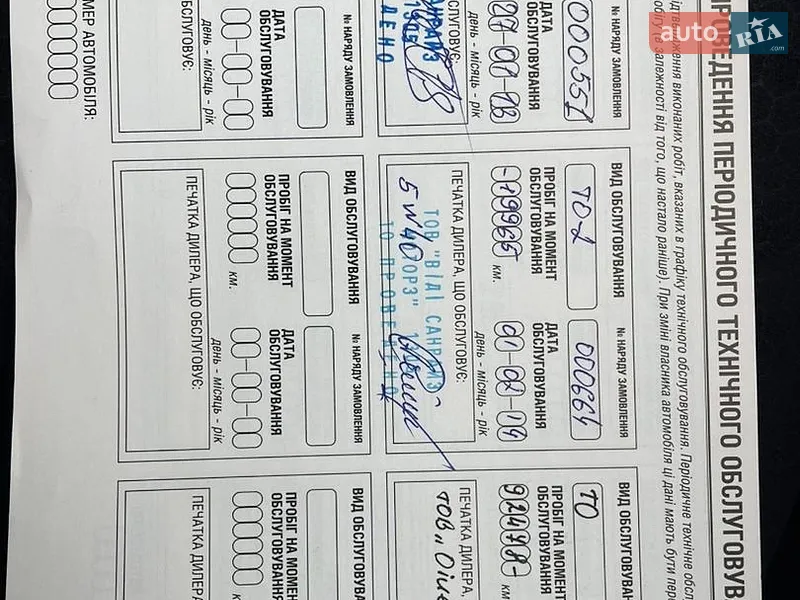 ПРОВЕДЕННЯ ПЕРІОДИЧНОГО ТЕХНІЧНОГО ОБСЛУГОВУВ
ідтвердження виконаних робіт, вказаних в графіку технічного обслуговування. Періодичне технічне обсл
обігу (в залежності від того, що настало раніше). При зміні власника автомобіля ці дані мають бути пере
№ НАРЯДУ ЗАМОВЛЕННЯ
000551
ДАТА ОБСЛУГОВУВАННЯ
27-01-13
день - місяць - рік
БСЛУГОВУЄ:
ДЕНО
ВИД ОБСЛУГОВУВАННЯ
ТО2
№ НАРЯДУ ЗАМОВЛЕННЯ
000664
ПРОБІГ НА МОМЕНТ ОБСЛУГОВУВАННЯ
-19965
км.
ДАТА ОБСЛУГОВУВАННЯ
01-02-14
день - місяць - рік
ПЕЧАТКА ДИЛЕРА, ЩО ОБСЛУГОВУЄ:
ТОВ "ВІДІ САНРАЙЗ
5W40
ТО ПРОВЕДЕНО
ВИД ОБСЛУГОВУВАННЯ
ТО
ПРОБІГ НА МОМЕНТ ОБСЛУГОВУВАННЯ
92478-
км.
ПЕЧАТКА ДИЛЕРА,
ТОВ "
№ НАРЯДУ ЗАМОВЛЕННЯ
ДАТА ОБСЛУГОВУВАННЯ
день - місяць - рік
БСЛУГОВУЄ:
ВИД ОБСЛУГОВУВАННЯ
№ НАРЯДУ ЗАМОВЛЕННЯ
ПРОБІГ НА МОМЕНТ ОБСЛУГОВУВАННЯ
км.
ДАТА ОБСЛУГОВУВАННЯ
день - місяць - рік
ПЕЧАТКА ДИЛЕРА, ЩО ОБСЛУГОВУЄ:
ВИД ОБСЛУГОВУВАННЯ
ПРОБІГ НА МОМЕНТ ОБСЛУГОВУВАННЯ
км.
ПЕЧАТКА ДИЛЕРА,
МЕР АВТОМОБІЛЯ:
auto RIA.com